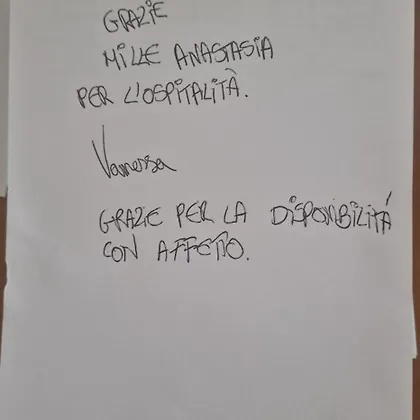 GRAZIE
MILLE ANASTASIA
PER L'OSPITALITÀ.
Vanessa
GRAZIE PER LA DISPONIBILITÁ
CON AFFETTO.